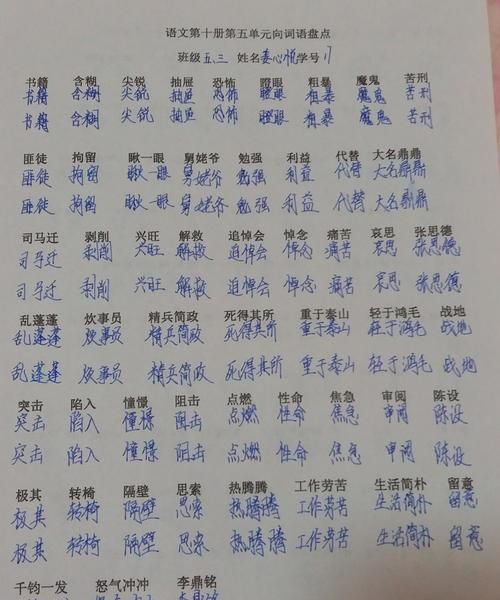 语文第十册第五单元向词语盘点
班级 五.三 姓名 姜心悦 学号 17
书籍 含糊 尖锐 抽屉 恐怖 瞪眼 粗暴 魔鬼 苦刑
书籍 含糊 尖锐 抽屉 恐怖 瞪眼 粗暴 魔鬼 苦刑
书籍 含糊 尖锐 抽屉 恐怖 瞪眼 粗暴 魔鬼 苦刑
匪徒 拘留 瞅一眼 舅姥爷 勉强 利益 代替 大名鼎鼎
匪徒 拘留 瞅一眼 舅姥爷 勉强 利益 代替 大名鼎鼎
匪徒 拘留 瞅一眼 舅姥爷 勉强 利益 代替 大名鼎鼎
司马迁 剥削 兴旺 解救 追悼会 悼念 痛苦 哀思 张思德
司马迁 剥削 兴旺 解救 追悼会 悼念 痛苦 哀思 张思德
司马迁 剥削 兴旺 解救 追悼会 悼念 痛苦 哀思 张思德
乱蓬蓬 炊事员 精兵简政 死得其所 重于泰山 轻于鸿毛 战地
乱蓬蓬 炊事员 精兵简政 死得其所 重于泰山 轻于鸿毛 战地
乱蓬蓬 炊事员 精兵简政 死得其所 重于泰山 轻于鸿毛 战地
突击 陷入 憧憬 阻击 点燃 性命 焦急 审阅 陈设
突击 陷入 憧憬 阻击 点燃 性命 焦急 审阅 陈设
突击 陷入 憧憬 阻击 点燃 性命 焦急 审阅 陈设
极其 转椅 隔壁 思索 热腾腾 工作劳苦 生活简朴 留意
极其 转椅 隔壁 思索 热腾腾 工作劳苦 生活简朴 留意
极其 转椅 隔壁 思索 热腾腾 工作劳苦 生活简朴 留意
千钧一发 怒气冲冲 李鼎铭